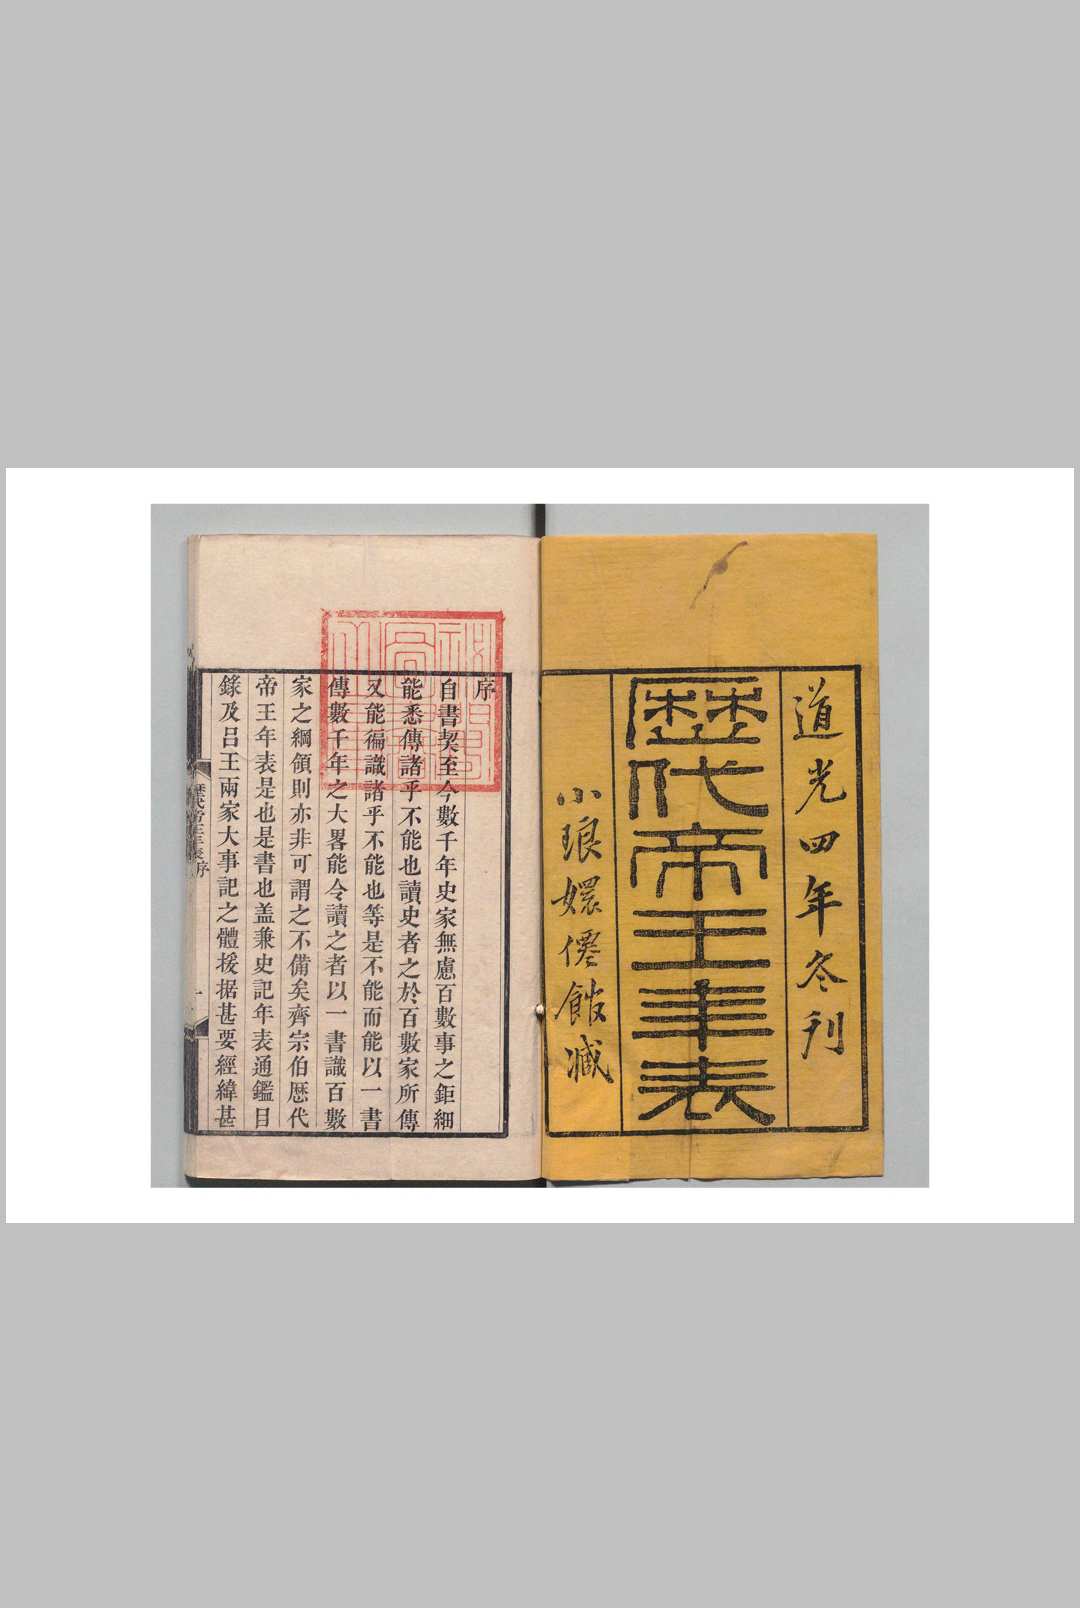 道光四年冬刊
歷代帝王年表
小琅嬛僊館臧
序
自書契至今數千年史家無慮百數事之鉅細
能悉傳諸乎不能也讀史者之於百數家所傳
又能徧識諸乎不能也等是不能而能以一書
傳數千年之大畧能令讀之者以一書識百數
家之綱領則亦非可謂之不備矣齊宗伯歷代
帝王年表是也是書也盖兼史記年表通鑑目
錄及呂王兩家大事記之體援据甚要經緯甚
歷代帝王年表序
一